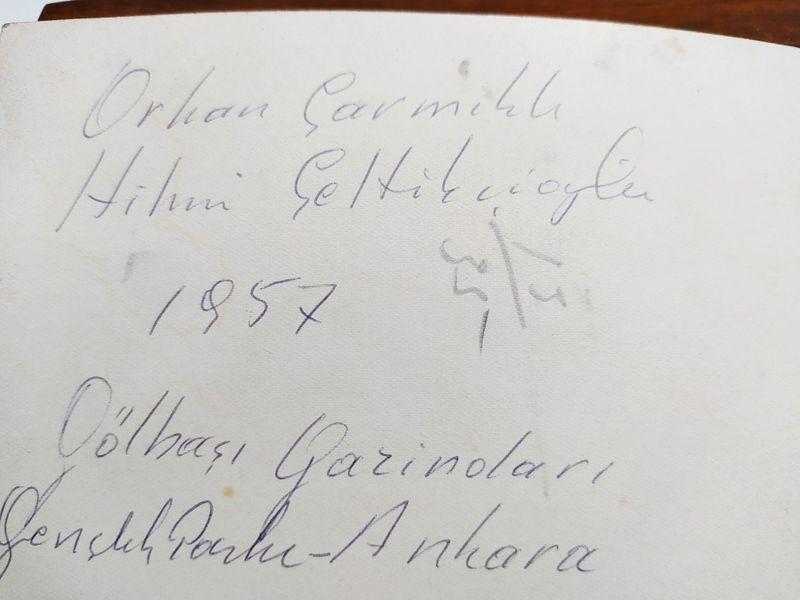 Orhan Çarmıklı
Hilmi Çeltikçioğlu
1957
Gölbaşı Gazinoları
Gençlik Parkı-Ankara